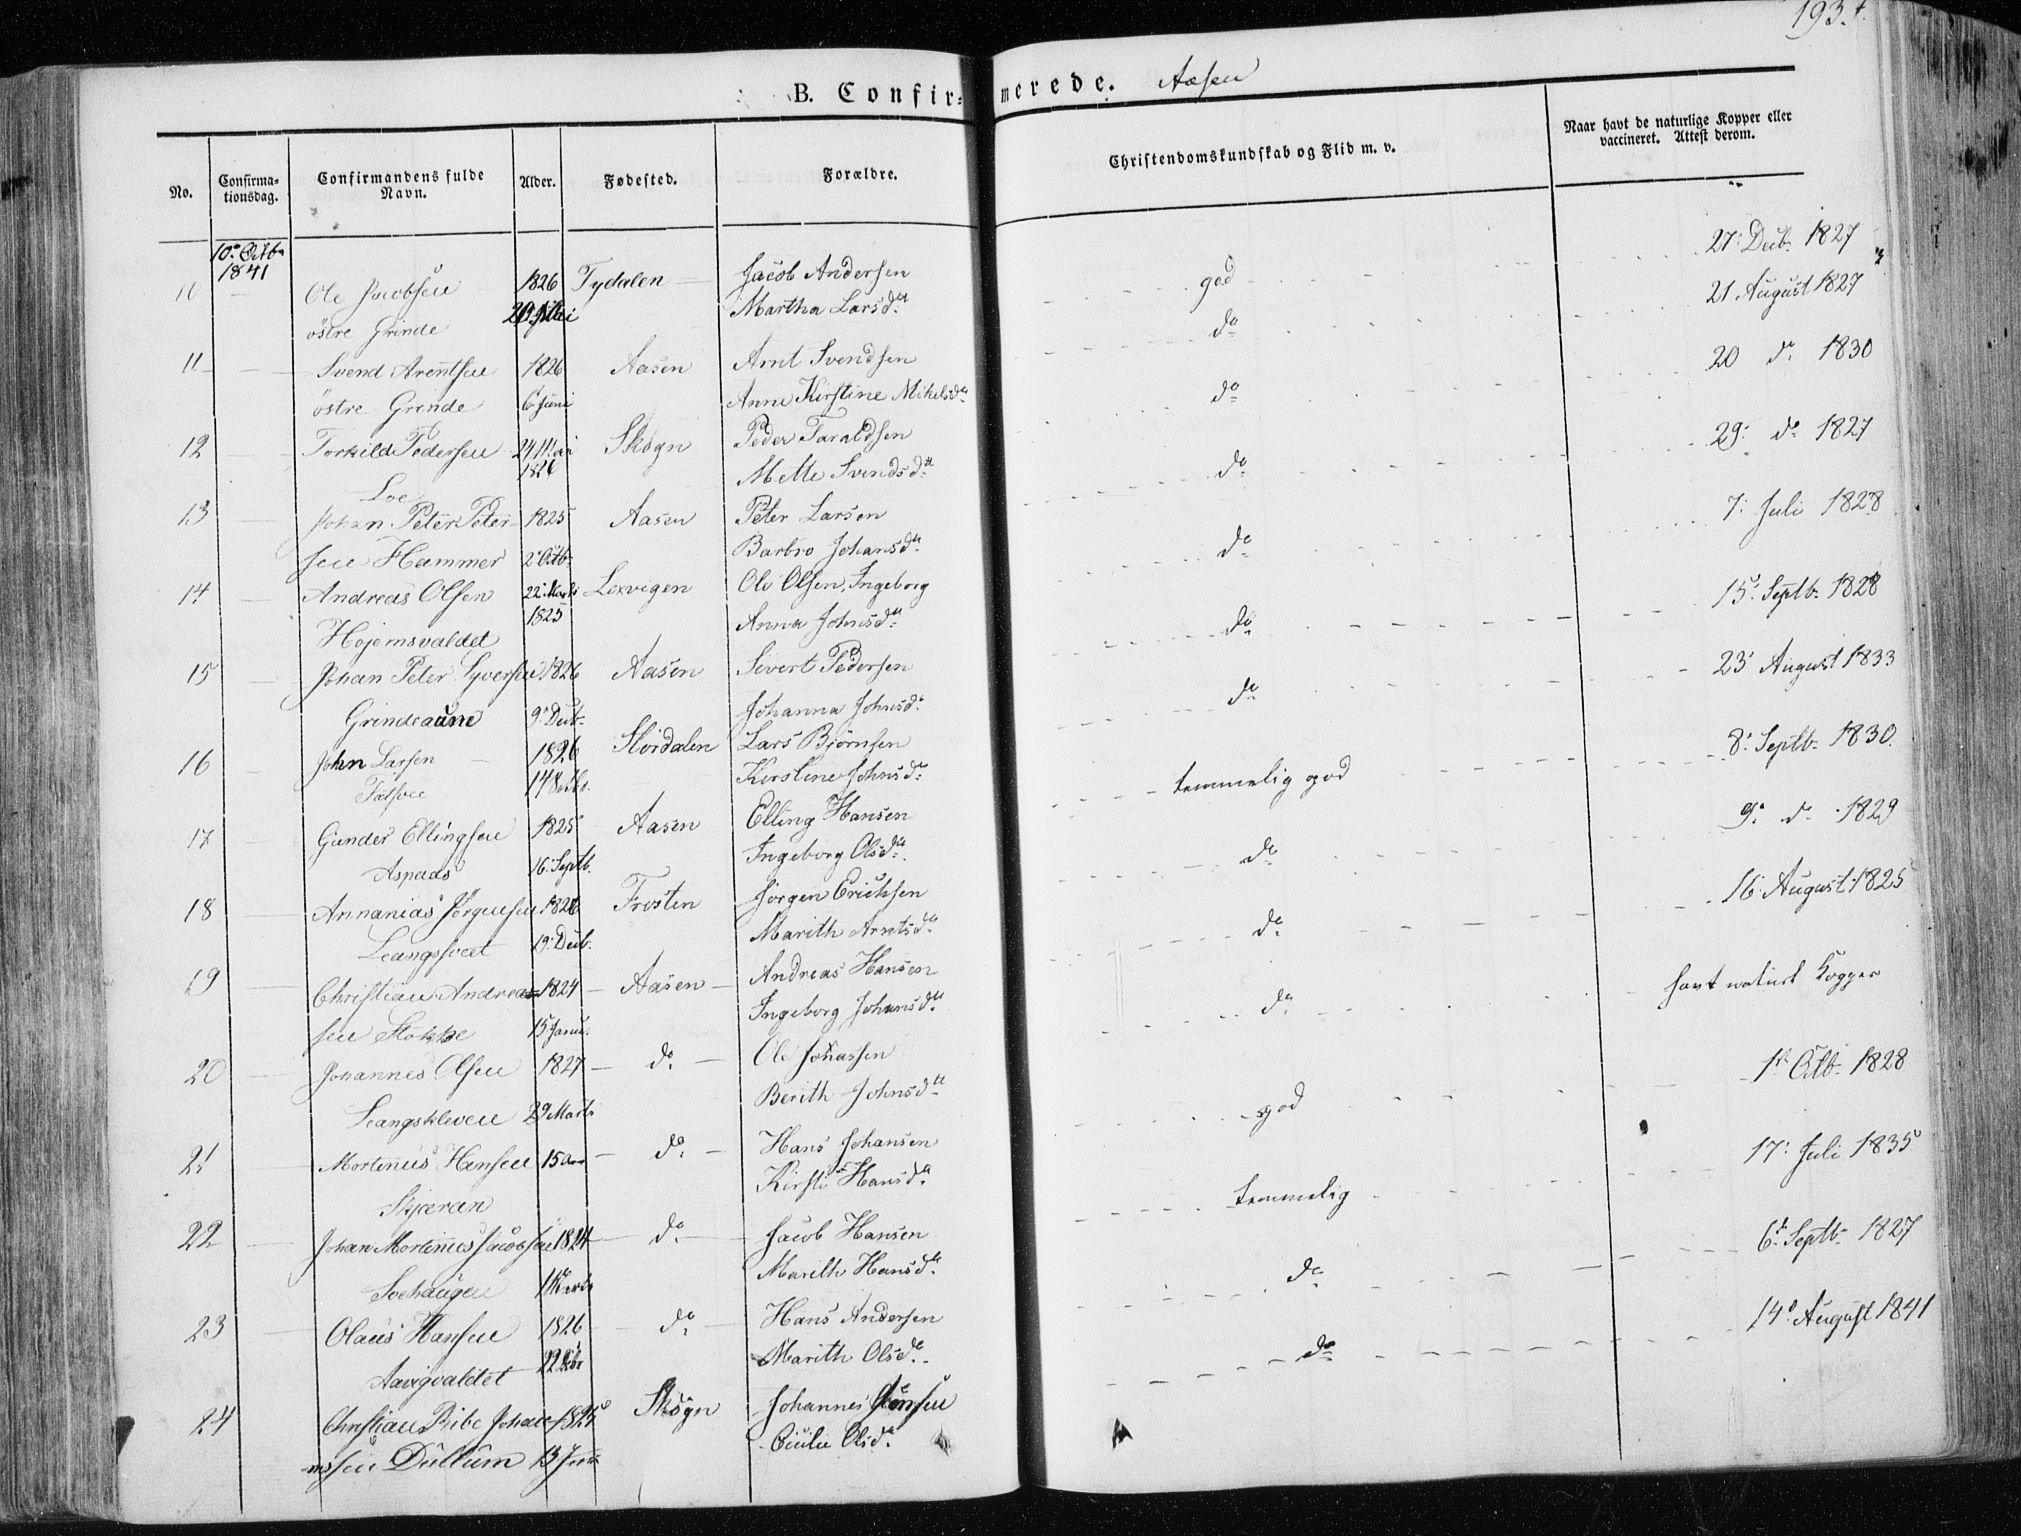 193.
B. Confirmerede. Aasen
No.
Confirmationsdag.
Confirmandens fulde Navn.
Alder.
Fødested.
Forældre.
Christendomskundskab og Flid m. v.
Naar havt de naturlige Kopper eller vaccineret. Attest derom.
10. Octb.
1841
10 Ole Jacobsen 1826 Tydalen Jacob Andersen god 27: Decb. 1827
østre Grinde Mai Martha Larsd.
11 Svend Arentsen 1826 Aasen Arnt Svendsen do 21 August 1827
østre Grinde 6 Juni Anne Kirstine Mikelsd.
12 Torkild Pedersen 24 Mai Skogn Peder Taraldsen do 20 do 1830
Loe 1826 Mette Svendsd.
13 Johan Peter Peter- 1825 Aasen Peter Larsen do 29: do 1827
sen Hammer 2 Octb. Barbro Johansd.
14 Andreas Olsen 22 Lexvigen Ole Olsen, Ingeborg do 7: Juli 1828
Højemsvaldet 1825 Anna Johnsd.
15 Johan Peter Syversen 1826 Aasen Sivert Pedersen do 15. Septb. 1828
Grindeaune 9. Decb. Johanna Johnsd.
16 John Larsen 1826 Stördalen Lars Bjørnsen do 23 August 1833
14 Kirstine Johnsd.
17 Gunder Ellingsen 1825 Aasen Elling Hansen temmelig god 8. Septb. 1830.
Aspaas 16. Septb. Ingeborg Olsd.
18 Annanias Jørgensen Frosten Jørgen Ericksen do 9. do 1829
19. Decb. Marith Arntsd.
19 Christian Andrea- 1824 Aasen Andreas Hansen do 16 August 1825
sen Stokke 15 Janu. Ingeborg Johnsd.
20 Johannes Olsen 1827 do Ole Johassen do havt naturl Kopper
Leangskleven 29 Marts Berith Johnsd.
21 Mortinus Hansen 15 Aar do Hans Johansen god 1. Octb. 1828
Skjeran Kirsti Hansd.
22 Johan Mortinus Jacobsen 1824 do Jacob Hansen temmelig 17: Juli 1835
Soehaugen Marith Hansd.
23 Olaus Hansen 1826 do Hans Andersen do 6. Septb. 1827
Aavigvaldet 22 Marith Olsd.
24 Christian Ribe Johan- 1825 Skogn Johannes do 14. August 1841
nssen Dullum 13 Cicilie Olsd.